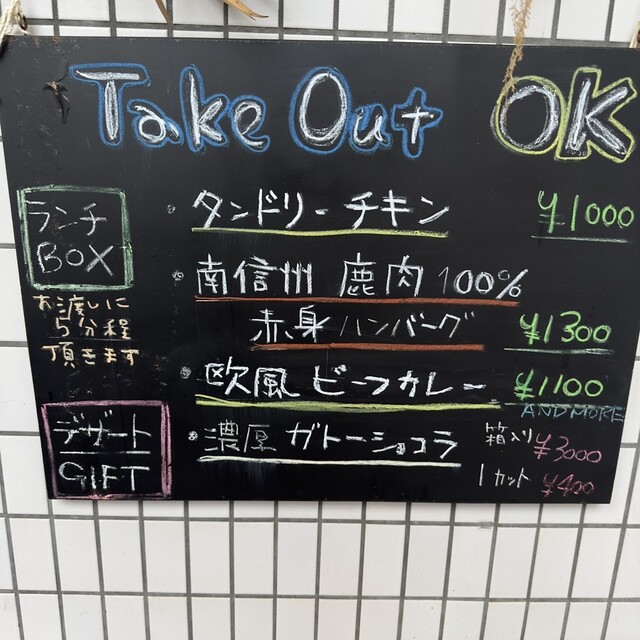 Take Out OK
ランチ
BOX
お渡しに
5分程
頂きます
・タンドリーチキン ¥1000
・南信州 鹿肉 100%
赤身ハンバーグ ¥1300
・欧風 ビーフカレー ¥1100
AND MORE
デザート
GIFT
・濃厚 ガトーショコラ 箱入り ¥3000
1カット ¥400